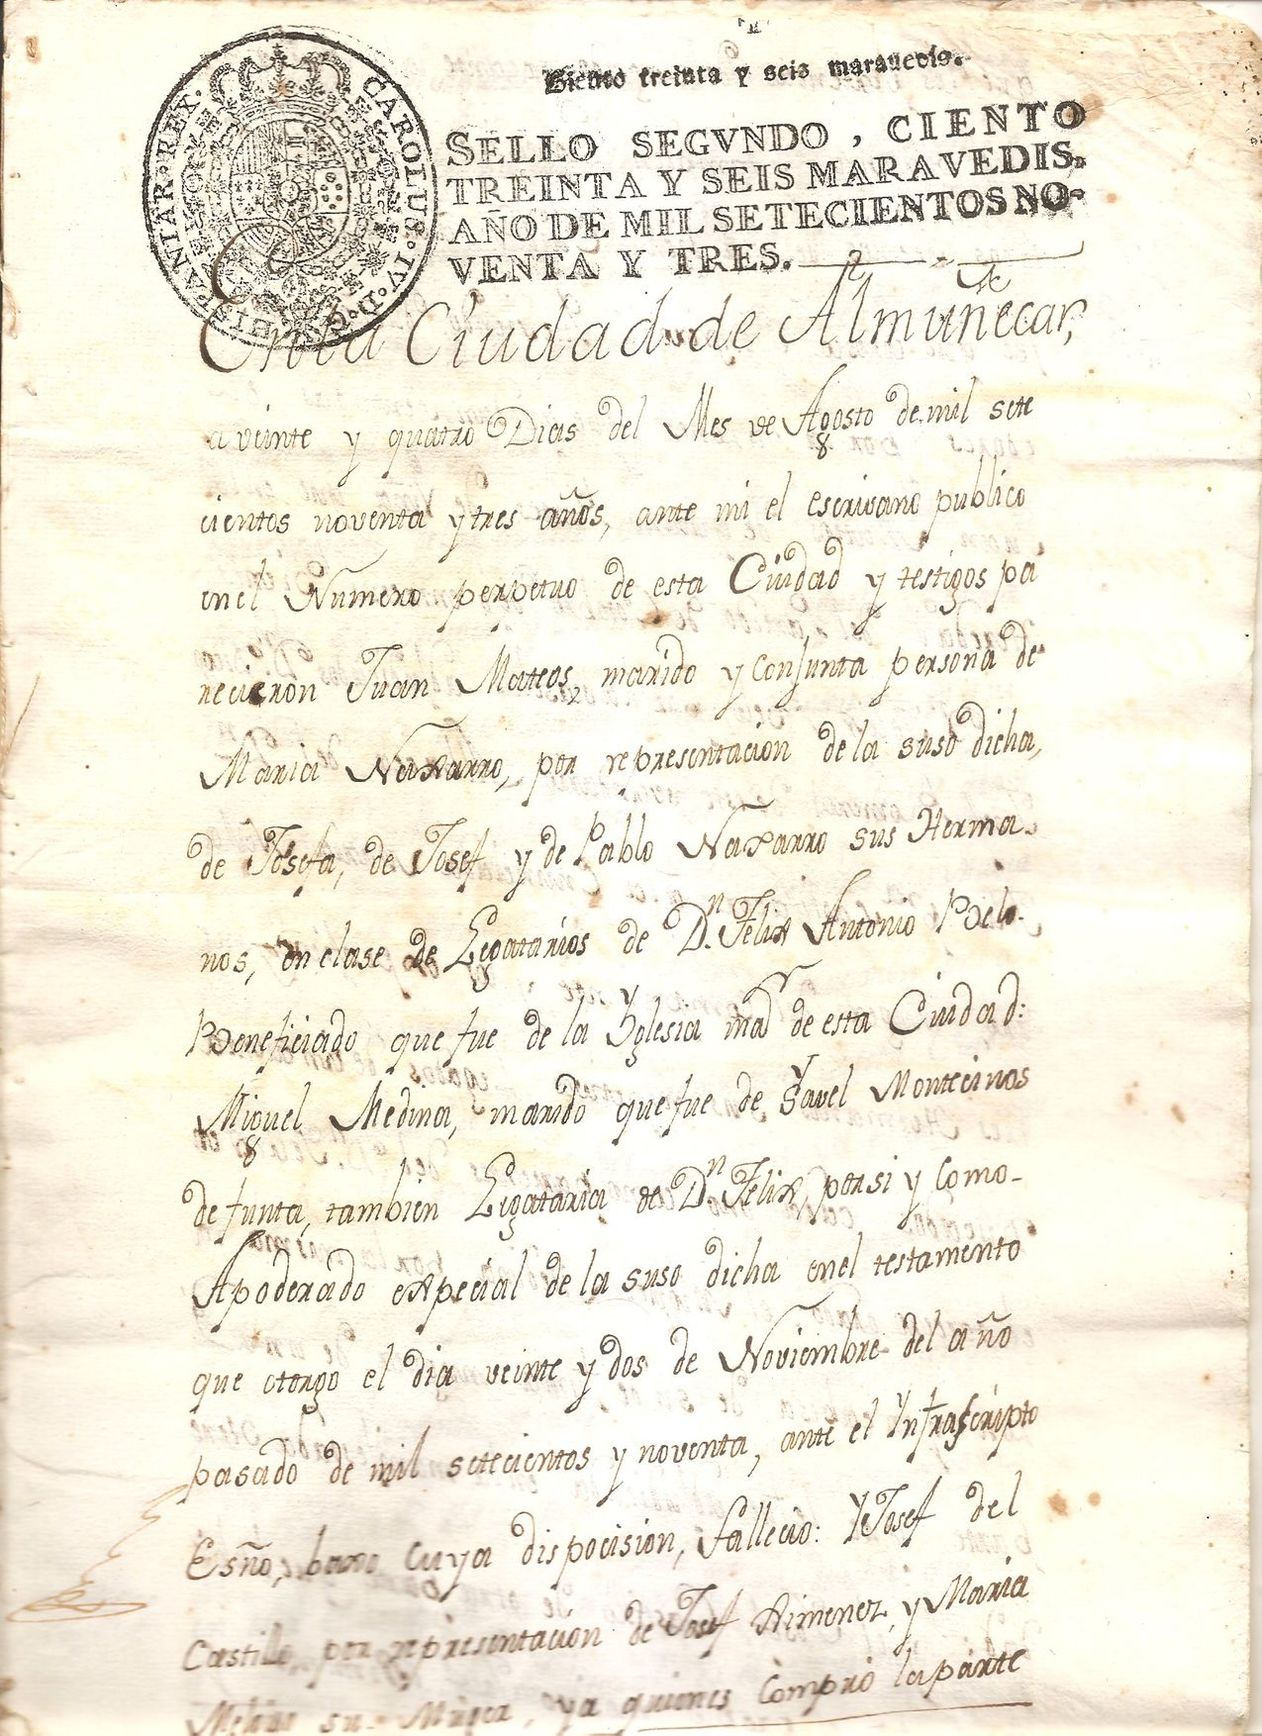 CAROLUS·IV·D·G·HISPANIAR·REX·
Ciento treinta y seis maravedis.
SELLO SEGVNDO, CIENTO
TREINTA Y SEIS MARAVEDIS,
AÑO DE MIL SETECIENTOS NO-
VENTA Y TRES.
En la Ciudad de Almuñecar,
a veinte y quatro Dias del Mes de Agosto de mil sete
cientos noventa y tres años, ante mi el escrivano publico
en el Numero perpetuo de esta Ciudad y testigos pa
recieron Juan Mateos, marido y Conjunta persona de
Maria Naxarro, por representacion de la suso dicha,
de Josefa, de Josef y de Pablo Naxarro sus Herma.
nos, en clase de Legatarios de D.n Felix Antonio Belo.
Beneficiado que fue de la Yglesia maor de esta Ciudad:
Miguel Medina, marido que fue de Ysavel Montecinos
defunta, tambien Legataria de D.n Felix, por si y como-
Apoderado expecial de la suso dicha en el testamento
que otorgo el dia veinte y dos de Noviembre del año
pasado de mil setecientos y noventa, ante el Ynfrascripto
Esño, baxo cuya disposicion, fallecio: Y Josef del
Castillo, por representacion de Josef Ximenez, y Maria
su Muger, y a quienes Compro la parte